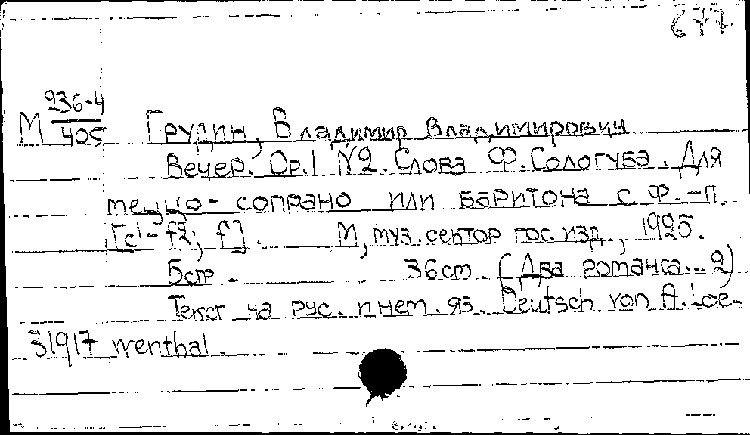 677
М 236-4/405 Грудин, Владимир Владимирович
Вечер. Op.1 №2. Слова Ф. Сологуба. Для
меццо-сопрано или баритона с ф.-п.
[c¹-f²; f]. М, муз. сектор гос. изд., 1925.
5стр. 36cm. (Два романса... 2)
Текст на рус. и нем. яз. Deutsch von A. Loe-
31917 wenthal.